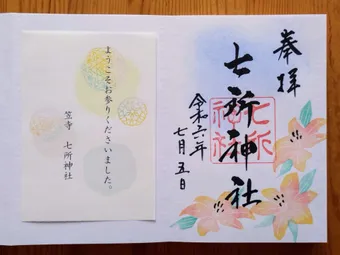 奉拝
七所神社
令和六年
七月五日
七所
神社
ようこそお参りくださいました。
笠寺 七所神社